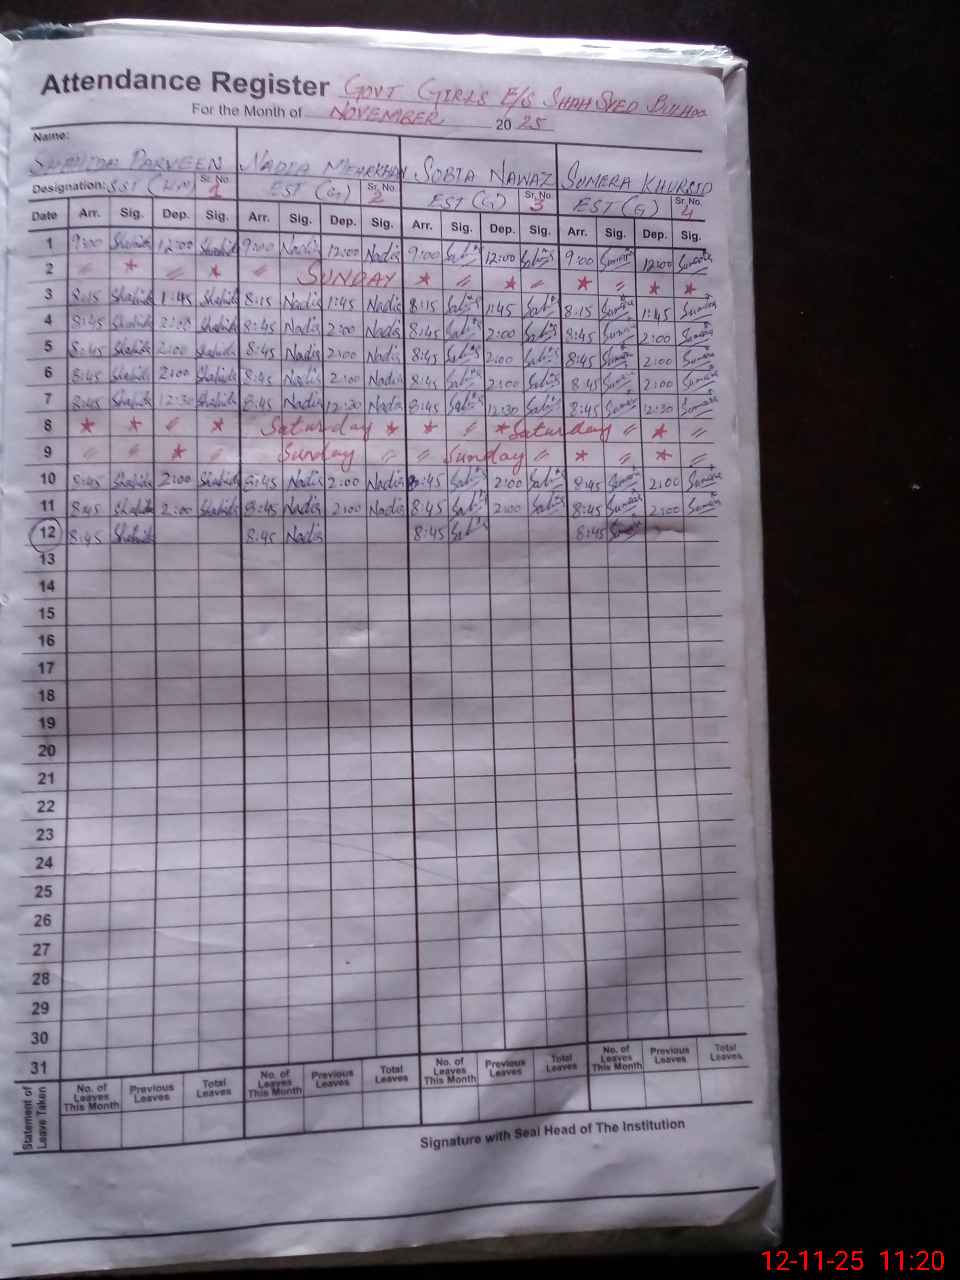 Attendance Register GOVT GIRLS E/S SHAH SYED
For the Month of NOVEMBER 2025
Name:
PARVEEN NADIA MEHRKHAN SOBIA NAWAZ SUMERA KHURSID
Designation: SST Sr. No. 1 EST (G) Sr. No. 2 EST (G) Sr. No. 3 EST (G) Sr. No. 4
Date Arr. Sig. Dep. Sig. Arr. Sig. Dep. Sig. Arr. Sig. Dep. Sig. Arr. Sig. Dep. Sig.
1 9:00 Shahida 12:00 Shahida 9:00 Nadia 12:00 Nadia 9:00 12:00 9:00 12:00
2 〃 * 〃 * 〃 SUNDAY * 〃 * 〃 * 〃 * *
3 8:15 Shahida 1:45 Shahida 8:15 Nadia 1:45 Nadia 8:15 1:45 8:15 1:45
4 8:45 Shahida 2:00 Shahida 8:45 Nadia 2:00 Nadia 8:45 2:00 8:45 2:00
5 8:45 Shahida 2:00 Shahida 8:45 Nadia 2:00 Nadia 8:45 2:00 8:45 2:00
6 8:45 Shahida 2:00 Shahida 8:45 Nadia 2:00 Nadia 8:45 2:00 8:45 2:00
7 8:45 Shahida 12:30 Shahida 8:45 Nadia 12:30 Nadia 8:45 12:30 8:45 12:30
8 * * 〃 * Saturday * * 〃 * Saturday 〃 * 〃
9 〃 〃 * 〃 Sunday 〃 〃 Sunday 〃 * 〃 * 〃
10 8:45 Shahida 2:00 Shahida 8:45 Nadia 2:00 Nadia 8:45 2:00 8:45 2:00
11 8:45 Shahida 2:00 Shahida 8:45 Nadia 2:00 Nadia 8:45 2:00 8:45 2:00
12 8:45 Shahida 8:45 Nadia 8:45 8:45
13
14
15
16
17
18
19
20
21
22
23
24
25
26
27
28
29
30
31
Statement of Leave Taken No. of Leaves This Month Previous Leaves Total Leaves No. of Leaves This Month Previous Leaves Total Leaves No. of Leaves This Month Previous Leaves Total Leaves No. of Leaves This Month Previous Leaves Total Leaves
Signature with Seal Head of The Institution
12-11-25 11:20